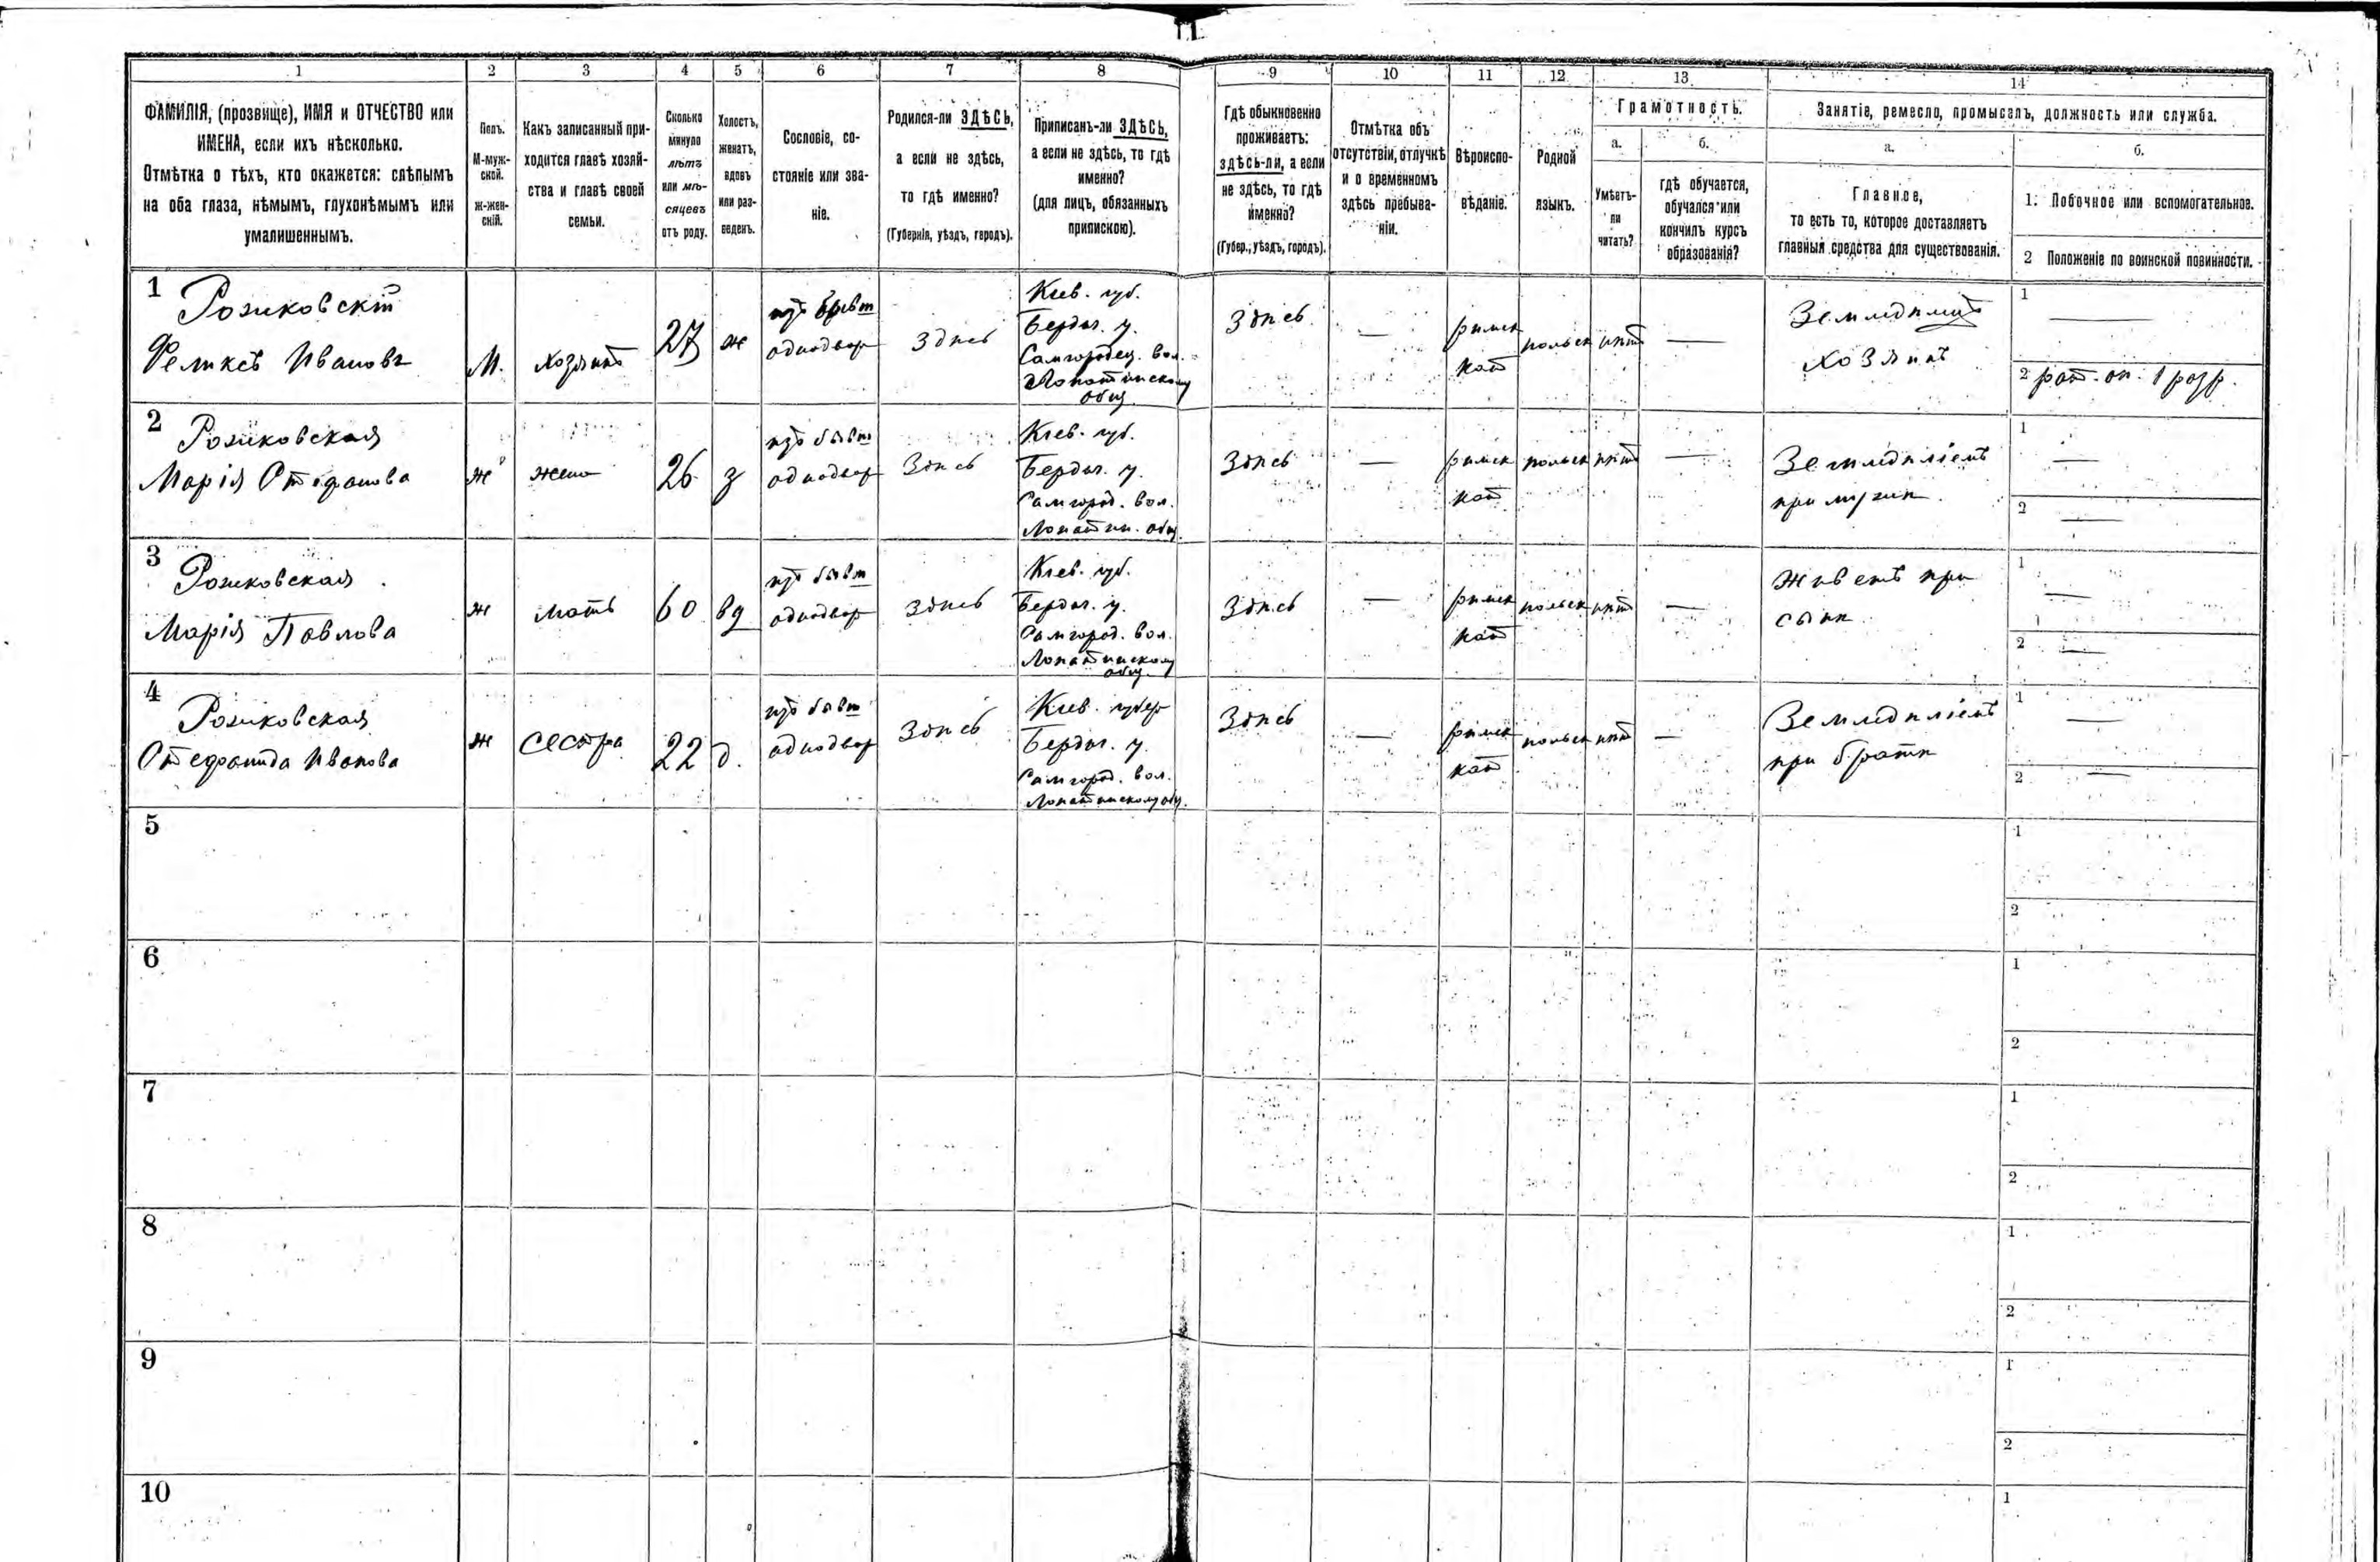 11
1 2 3 4 5 6 7 8 9 10 11 12 13 14
ФАМИЛІЯ, (прозвище), ИМЯ и ОТЧЕСТВО или
ИМЕНА, если ихъ нѣсколько.
Отмѣтка о тѣхъ, кто окажется: слѣпымъ
на оба глаза, нѣмымъ, глухонѣмымъ или
умалишеннымъ.
Полъ.
М-муж-
ской.
ж-жен-
скій.
Какъ записанный при-
ходится главѣ хозяй-
ства и главѣ своей
семьи.
Сколько
минуло
лѣтъ
или мѣ-
сяцевъ
отъ роду.
Холостъ,
женатъ,
вдовъ
или раз-
веденъ.
Сословіе, со-
стояніе или зва-
ніе.
Родился-ли ЗДѢСЬ,
а если не здѣсь,
то гдѣ именно?
(Губернія, уѣздъ, городъ).
Приписанъ-ли ЗДѢСЬ,
а если не здѣсь, то гдѣ
именно?
(для лицъ, обязанныхъ
припискою).
Гдѣ обыкновенно
проживаетъ:
здѣсь-ли, а если
не здѣсь, то гдѣ
именно?
(Губер., уѣздъ, городъ).
Отмѣтка объ
отсутствіи, отлучкѣ
и о временномъ
здѣсь пребыва-
ніи.
Вѣроиспо-
вѣданіе.
Родной
языкъ.
Грамотность.
а.
Умѣетъ-
ли
читать?
б.
гдѣ обучается,
обучался или
кончилъ курсъ
образованія?
Занятіе, ремесло, промыселъ, должность или служба.
а.
Главное,
то есть то, которое доставляетъ
главныя средства для существованія.
б.
1. Побочное или вспомогательное.
2 Положеніе по воинской повинности.
1
Рожковскій
Феликсъ Ивановъ
М.
хозяинъ
27
ж
изъ бывш
однодвор
здѣсь
Кіев. губ.
Бердич. у.
Самгородец. вол.
Лопатинскому
общ.
Здѣсь
—
римск
кат
польск
нѣт
—
Земледѣлецъ
хозяинъ
1 —
2 рат. оп. 1 разр.
2
Рожковская
Марія Стефанова
ж
жена
26
з
изъ бывш
однодвор
Здѣсь
Кіев. губ.
Бердич. у.
Самгород. вол.
Лопатин. общ.
Здѣсь
—
римск
кат
польск
нѣт
—
Земледѣліемъ
при мужѣ
1 —
2 —
3
Рожковская
Марія Павлова
ж
мать
60
вд
изъ бывш
однодвор
здѣсь
Кіев. губ.
Бердич. у.
Самгород. вол.
Лопатинскому
общ.
Здѣсь
—
римск
кат
польск
нѣт
—
Живетъ при
сынѣ
1 —
2 —
4
Рожковская
Стефанида Иванова
ж
сестра
22
д.
изъ бывш
однодвор
Здѣсь
Кіев. губер
Бердич. у.
Самгород. вол.
Лопатинскому общ.
Здѣсь
—
римск
кат
польск
нѣт
—
Земледѣліемъ
при братѣ
1 —
2 —
5
1
2
6
1
2
7
1
2
8
1
2
9
1
2
10
1